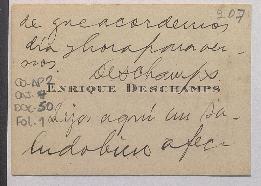 207
de que acordemos
día y hora para ver-
nos.
Deschamps
CO-AP2
DOC-50
FOL-1
ENRIQUE DESCHAMPS
Dejo aquí un sa-
ludo bien afec-